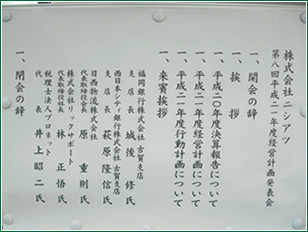 株式会社ニシアツ
第八回平成二一年度経営計画発表会
一、開会の辞
一、挨拶
一、平成二〇年度決算報告について
一、平成二一年度経営計画について
一、平成二一年度行動計画について
一、来賓挨拶
福岡銀行株式会社 古賀支店
支店長 城後 修氏
西日本シティ銀行株式会社 古賀支店
支店長 萩原隆信氏
日西物流株式会社
代表取締役会長 原 重則氏
株式会社リックサポート
代表取締役社長 林 正悟氏
税理士法人プロネット
代表 井上昭二氏
一、閉会の辞